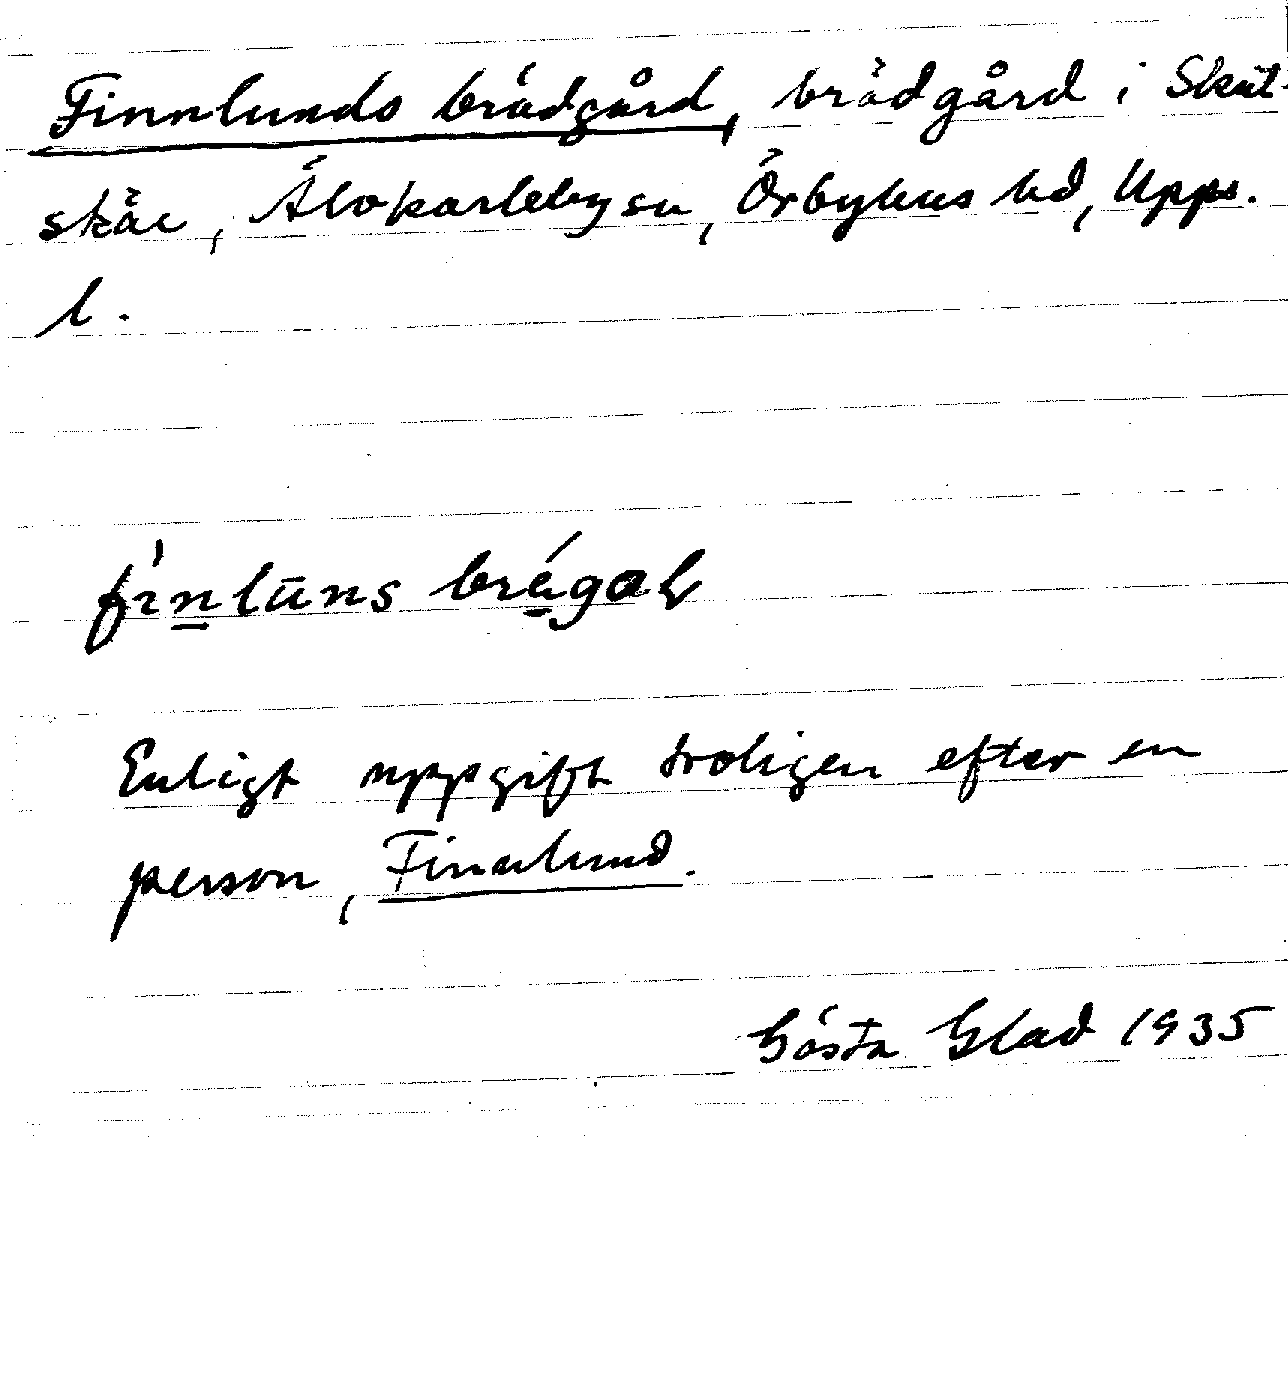 Finnlunds brädgård, brädgård i Skut-
skär, Älvkarleby sn, Örbyhus hd, Upps.
l.
Enligt uppgift troligen efter en
person, Finnlund.
Gösta Glad 1935